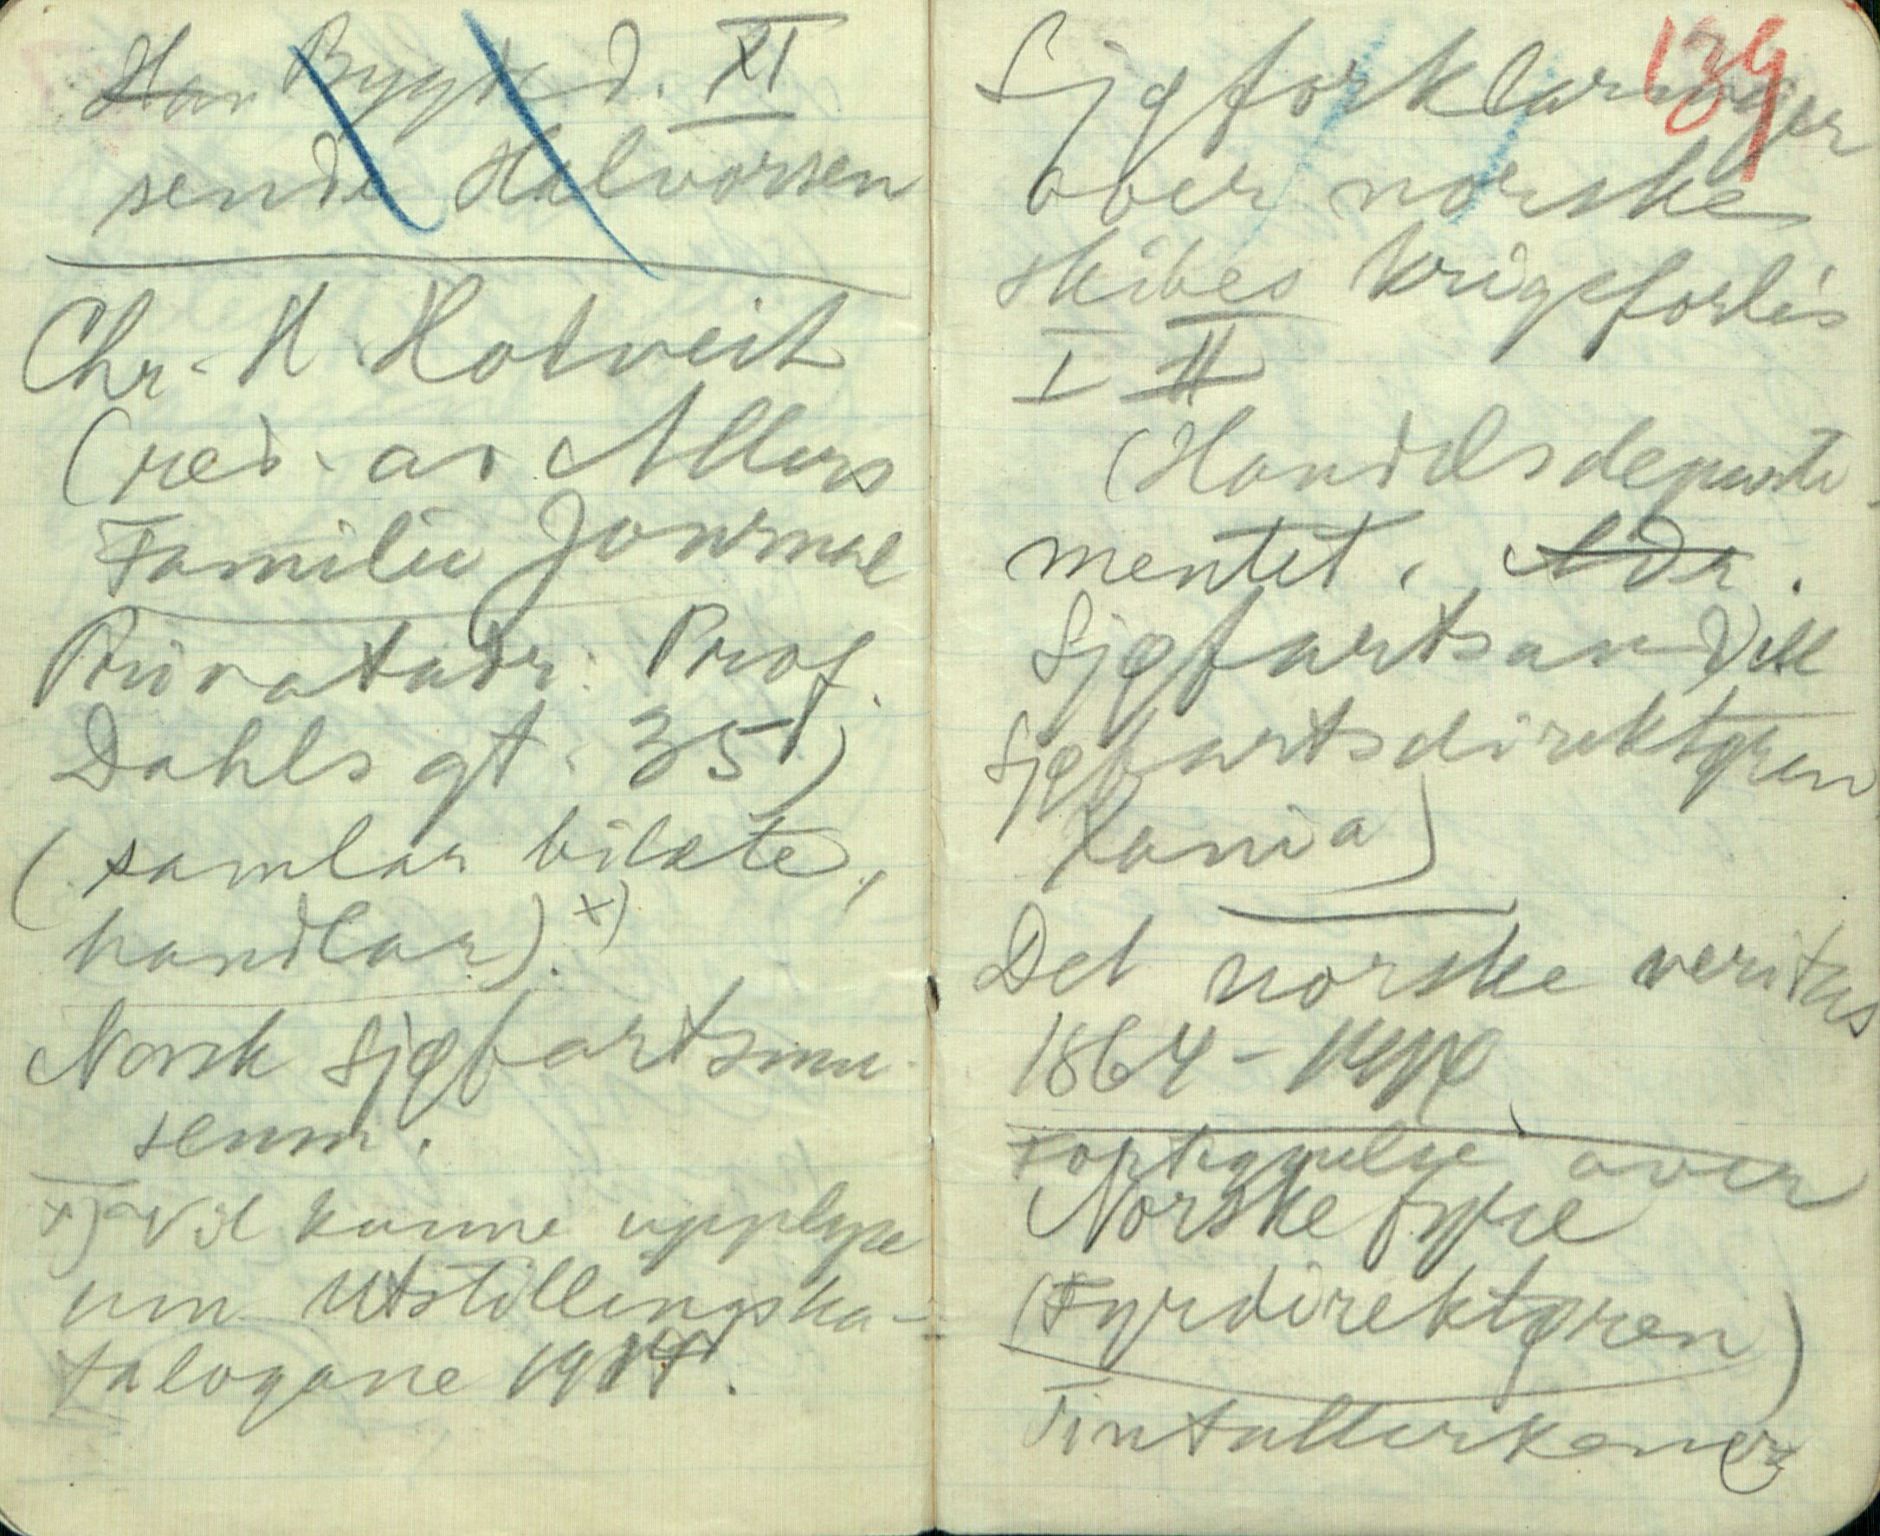 Har Bygd d. XI
sende Halvorsen
Chr. H. Hotveit
(red. av Allers
Familie Journal
Privatadr: Prof.
Dahls gt. 35)
(samlar bilæte,
handlar).x)
Norsk Sjøfartsmu-
seum.
x) Vil kunne upplysa
um Utstillingska-
talogane 1914.
139
Sjøforklaringer
over norske
skibes krigsforlis
I II
(Handelsdeparte-
mentet. Adr.
Sjøfartsavdell
Sjøfartsdirektøren
Xania)
Det norske veritas
1864-
Fortegnelse over
Norske fyre
(Fyrdirektøren)
Tintallerkener